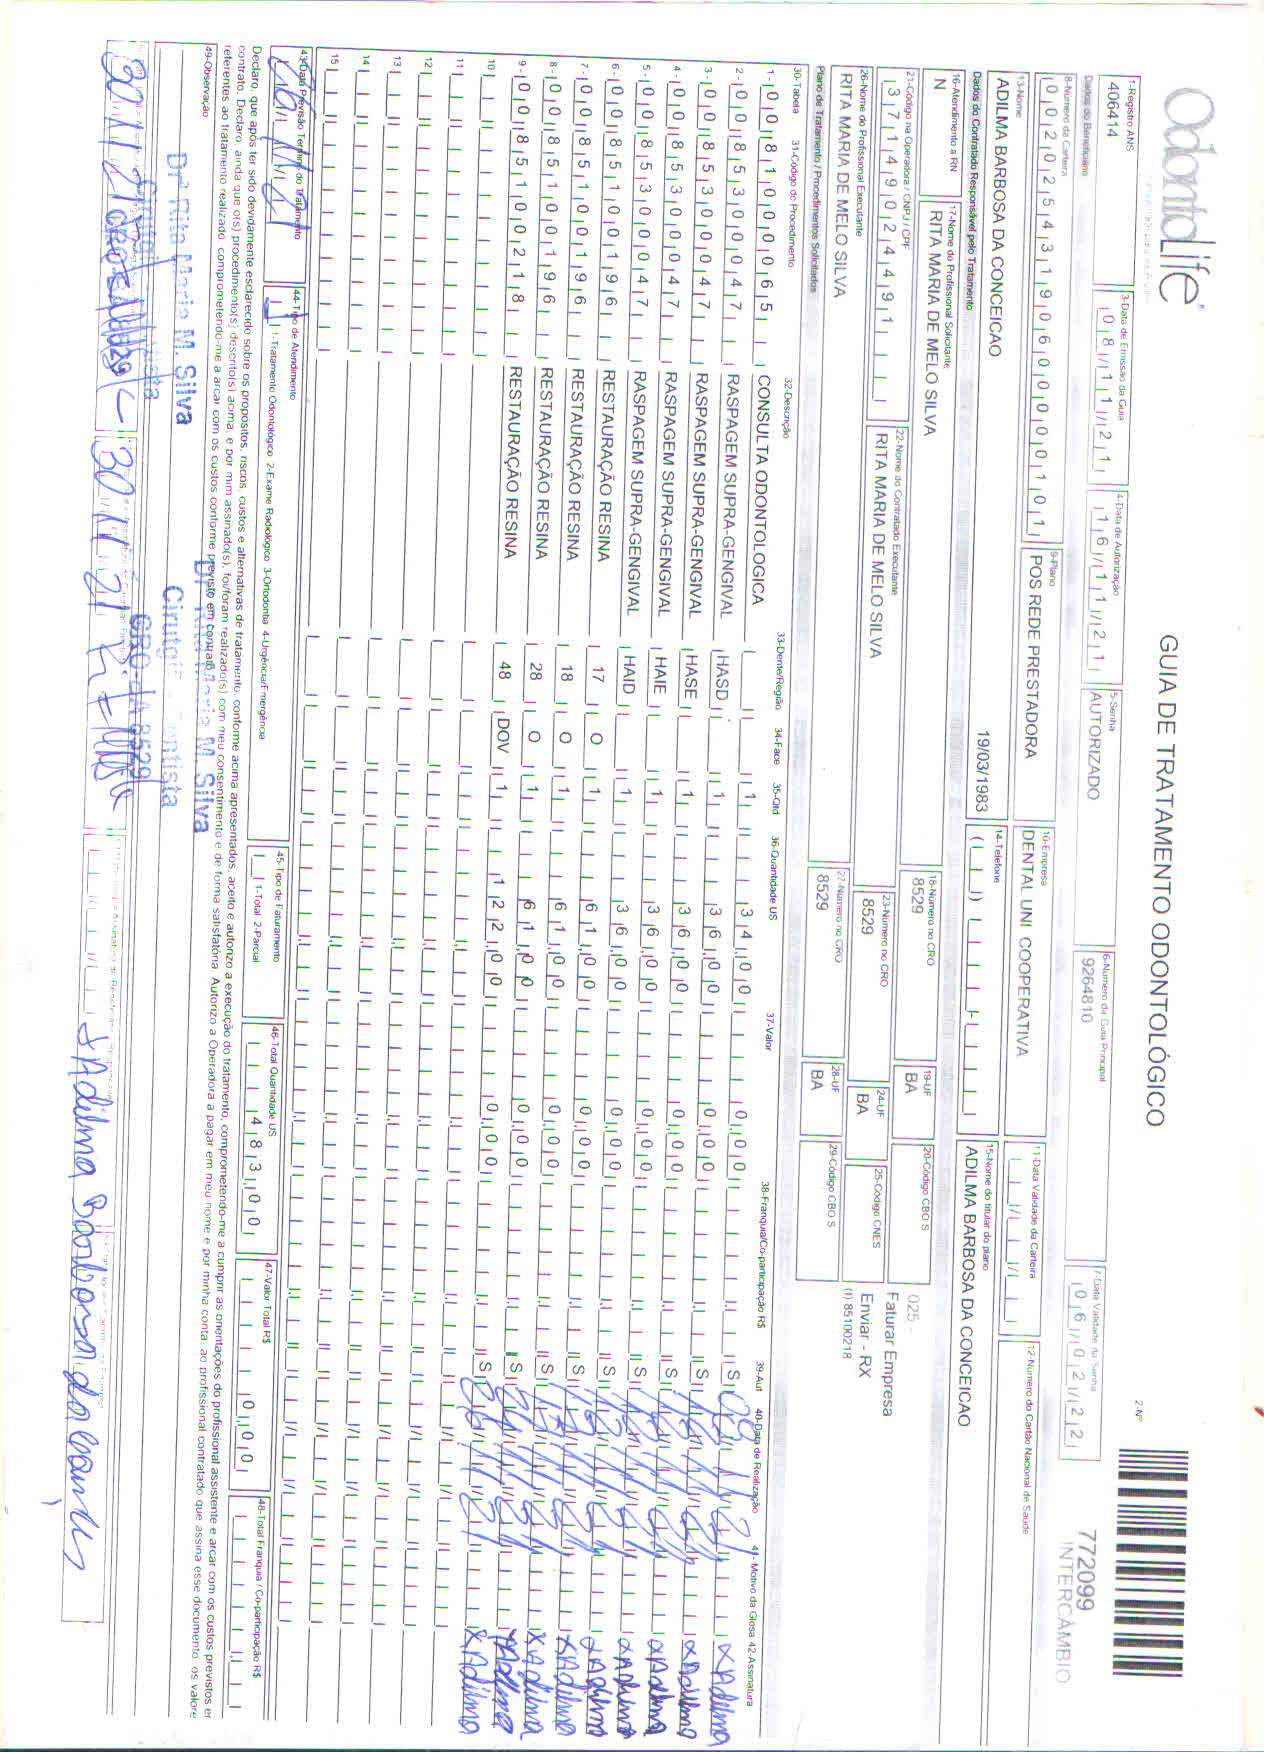 OdontoLife
GUIA DE TRATAMENTO ODONTOLÓGICO
2-Nº
772099
INTERCÂMBIO
1-Registro ANS
406414
3-Data de Emissão da Guia
08/11/21
4-Data de Autorização
16/11/21
5-Senha
AUTORIZADO
6-Número da Guia Principal
9264810
7-Data Validade da Senha
06/02/22
Dados do Beneficiário
8-Número da Carteira
00202543190600000101
9-Plano
POS REDE PRESTADORA
10-Empresa
DENTAL UNI COOPERATIVA
11-Data Validade da Carteira
12-Número do Cartão Nacional de Saúde
13-Nome
ADILMA BARBOSA DA CONCEICAO
19/03/1983
14-Telefone
15-Nome do titular do plano
ADILMA BARBOSA DA CONCEICAO
Dados do Contratado Responsável pelo Tratamento
16-Atendimento a RN
N
17-Nome do Profissional Solicitante
RITA MARIA DE MELO SILVA
18-Número no CRO
8529
19-UF
BA
20-Código CBO S
025
Faturar Empresa
Enviar - RX
(I) 85100218
21-Código na Operadora / CNPJ / CPF
37149024491
22-Nome do Contratado Executante
RITA MARIA DE MELO SILVA
23-Número no CRO
8529
24-UF
BA
25-Código CNES
26-Nome do Profissional Executante
RITA MARIA DE MELO SILVA
27-Número no CRO
8529
28-UF
BA
29-Código CBO S
Plano de Tratamento / Procedimentos Solicitados
30-Tabela 31-Código do Procedimento 32-Descrição 33-Dente/Região 34-Face 35-Qtd 36-Quantidade US 37-Valor 38-Franquia/Co-participação R$ 39-Aut 40-Data de Realização 41- Motivo da Glosa 42-Assinatura
1- 00 81000065 CONSULTA ODONTOLOGICA 1 34,00 0,00 S xAdilma
2- 00 85300047 RASPAGEM SUPRA-GENGIVAL HASD 1 36,00 0,00 S xAdilma
3- 00 85300047 RASPAGEM SUPRA-GENGIVAL HASE 1 36,00 0,00 S xAdilma
4- 00 85300047 RASPAGEM SUPRA-GENGIVAL HAIE 1 36,00 0,00 S xAdilma
5- 00 85300047 RASPAGEM SUPRA-GENGIVAL HAID 1 36,00 0,00 S xAdilma
6- 00 85100196 RESTAURAÇÃO RESINA 17 O 1 61,00 0,00 S xAdilma
7- 00 85100196 RESTAURAÇÃO RESINA 18 O 1 61,00 0,00 S xAdilma
8- 00 85100196 RESTAURAÇÃO RESINA 28 O 1 61,00 0,00 S xAdilma
9- 00 85100218 RESTAURAÇÃO RESINA 48 DOV 1 122,00 0,00 S 26/11/21 xAdilma
10
11
12
13
14
15
43-Data Previsão Término do Tratamento
26/11/21
44-Tipo de Atendimento
1-Tratamento Odontológico 2-Exame Radiológico 3-Ortodontia 4-Urgência/Emergência
45-Tipo de Faturamento
1-Total 2-Parcial
46-Total Quantidade US
483,00
47-Valor Total R$
0,00
48-Total Franquia / Co-participação R$
Declaro, que após ter sido devidamente esclarecido sobre os propósitos, riscos, custos e alternativas de tratamento conforme acima apresentados, aceito e autorizo a execução do tratamento, comprometendo-me a cumprir as orientações do profissional assistente e arcar com os custos previstos em
contrato. Declaro, ainda que o(s) procedimento(s) descrito(s) acima, e por mim assinado(s), foi/foram realizado(s) com meu consentimento e de forma satisfatória. Autorizo a Operadora a pagar em meu nome e por minha conta, ao profissional contratado que assina esse documento, os valore
referentes ao tratamento realizado, comprometendo-me a arcar com os custos conforme previsto em contrato.
49-Observação
Drª Rita Maria M. Silva
Drª Rita Maria M. Silva
Cirurgiã Dentista
CRO-BA 8529
30/11/21
x Adilma Barbosa da